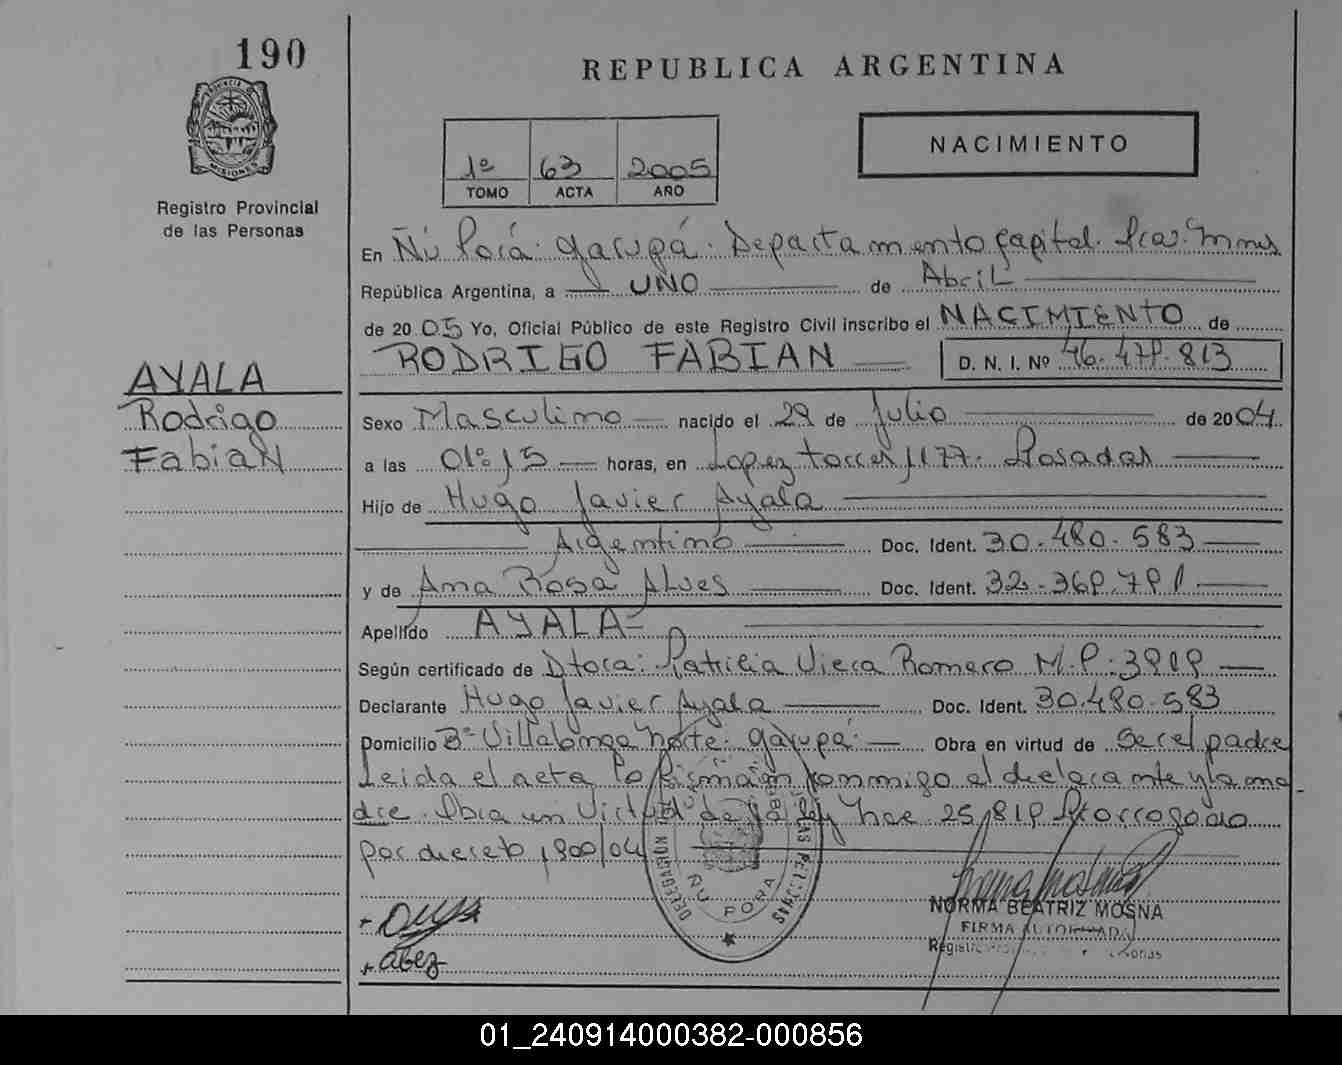 190
PROVINCIA DE MISIONES
Registro Provincial
de las Personas
REPUBLICA ARGENTINA
NACIMIENTO
1º 63 2005
TOMO ACTA AÑO
En Ñú Porá. Garupá. Departamento Capital. Pcia. Mnes
República Argentina, a UNO de Abril
de 2005 Yo, Oficial Público de este Registro Civil inscribo el NACIMIENTO de
RODRIGO FABIAN D. N. I. Nº
AYALA
Rodrigo
Fabian
Sexo Masculino nacido el de Julio de 2004
a las 01:15 horas, en Lopez torres 1177. Posadas
Hijo de Hugo Javier Ayala
Argentino Doc. Ident. 30.480.583
y de Ana Rosa Alves Doc. Ident.
Apellido AYALA
Según certificado de Dtora: Patricia Viera Romero M.P:
Declarante Hugo Javier Ayala Doc. Ident. 30.480.583
Domicilio Bº Villalonga Norte. Garupá. Obra en virtud de ser el padre
Leida el acta la firman conmigo el declarante y la ma
dre. Obra en Virtud de la ley Nac 25.819 Prorrogado
por decreto 1800/04
DELEGACION
ÑU PORA
NORMA BEATRIZ MOSNA
FIRMA AUTORIZADA
01_240914000382-000856